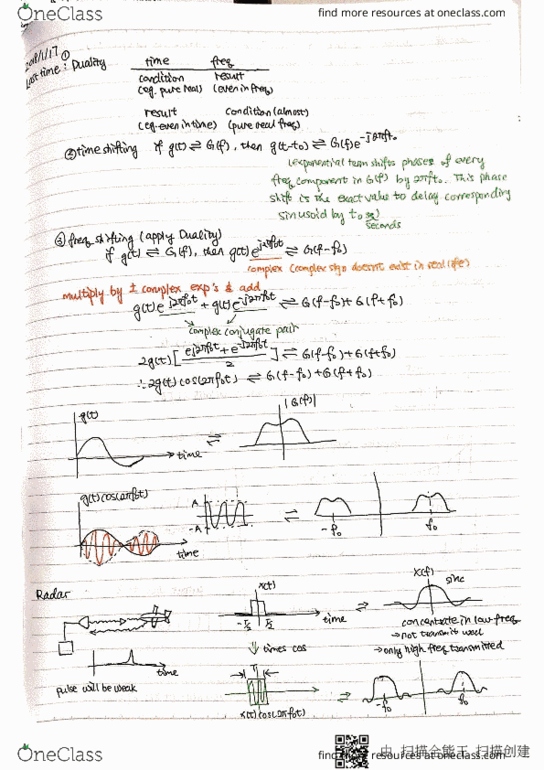 OneClass
find more resources at oneclass.com
2018/1/17 ①
Last time : Duality
time freq
condition result
(eg. pure real) (even in freq)
result condition (almost)
(eg. even in time) (pure real freq)
② time shifting if g(t) ⇌ G(f), then g(t-t₀) ⇌ G(f)e^-j2πft₀
(exponential term shifts phases of every
freq component in G(f) by 2πft₀. This phase
shift is the exact value to delay corresponding
sinusoid by t₀
seconds
③ freq shifting (apply Duality)
if g(t) ⇌ G(f), then g(t)e^j2πf₀t ⇌ G(f-f₀)
complex (complex sign doesn't exist in real life)
multiply by ± complex exp's & add
g(t)e^j2πf₀t + g(t)e^-j2πf₀t ⇌ G(f-f₀)+G(f+f₀)
complex conjugate pair
2g(t)[e^j2πf₀t + e^-j2πf₀t / 2] ⇌ G(f-f₀)+G(f+f₀)
∴ 2g(t)cos(2πf₀t) ⇌ G(f-f₀)+G(f+f₀)
g(t) |G(f)|
time ⇌
g(t)cos(2πf₀t)
A
-A
⇌
-f₀ f₀
time
Radar
x(t) X(f) sinc
-T/2 T/2 time ⇌
concentrate in low freq
→ not transmit well
→ only high freq transmitted
⇓ times cos
time
pulse will be weak
T
⇌
-f₀ f₀
x(t)cos(2πf₀t)
OneClass
find more resources at oneclass.com
扫描全能王 扫描创建